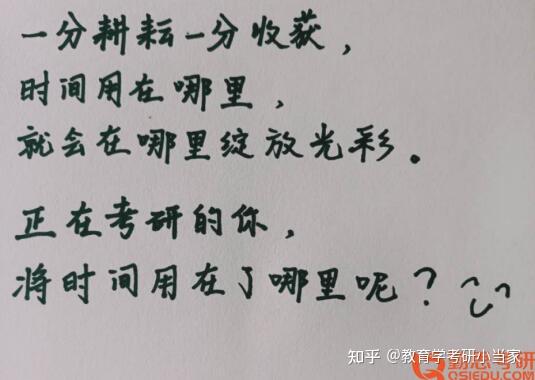 一分耕耘一分收获，
时间用在哪里，
就会在哪里绽放光彩。
正在考研的你，
将时间用在了哪里呢？
知乎 @教育学考研小当家
勤思考研
QSIEDU.COM